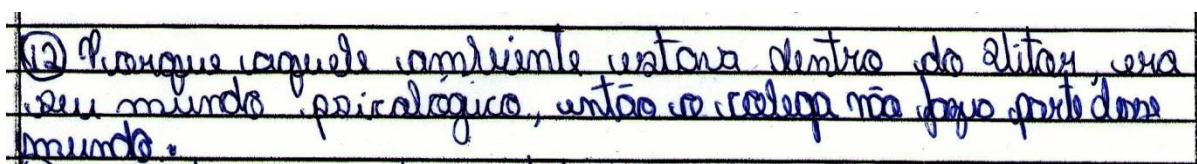 12 Porque aquele ambiente estava dentro do Vitor, era
seu mundo psicológico, então o colega não fazia parte desse
mundo.